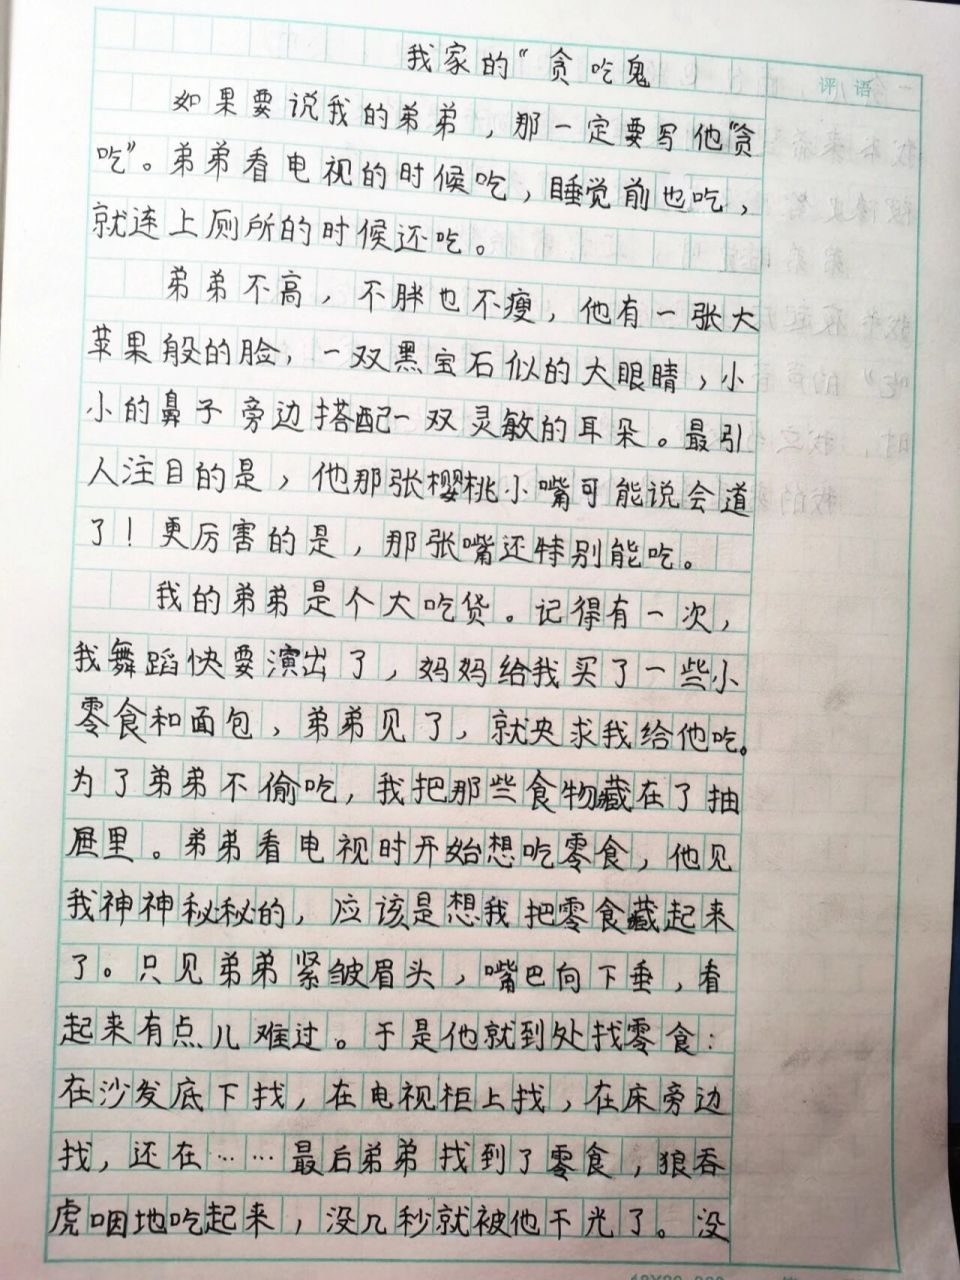 我家的“贪吃鬼
评语
如果要说我的弟弟，那一定要写他“贪
吃”。弟弟看电视的时候吃，睡觉前也吃，
就连上厕所的时候还吃。
弟弟不高，不胖也不瘦，他有一张大
苹果般的脸，一双黑宝石似的大眼睛，小
小的鼻子旁边搭配一双灵敏的耳朵。最引
人注目的是，他那张樱桃小嘴可能说会道
了！更厉害的是，那张嘴还特别能吃。
我的弟弟是个大吃货。记得有一次，
我舞蹈快要演出了，妈妈给我买了一些小
零食和面包，弟弟见了，就央求我给他吃。
为了弟弟不偷吃，我把那些食物藏在了抽
屉里。弟弟看电视时开始想吃零食，他见
我神神秘秘的，应该是想我把零食藏起来
了。只见弟弟紧皱眉头，嘴巴向下垂，看
起来有点儿难过。于是他就到处找零食：
在沙发底下找，在电视柜上找，在床旁边
找，还在……最后弟弟找到了零食，狼吞
虎咽地吃起来，没几秒就被他干光了。没